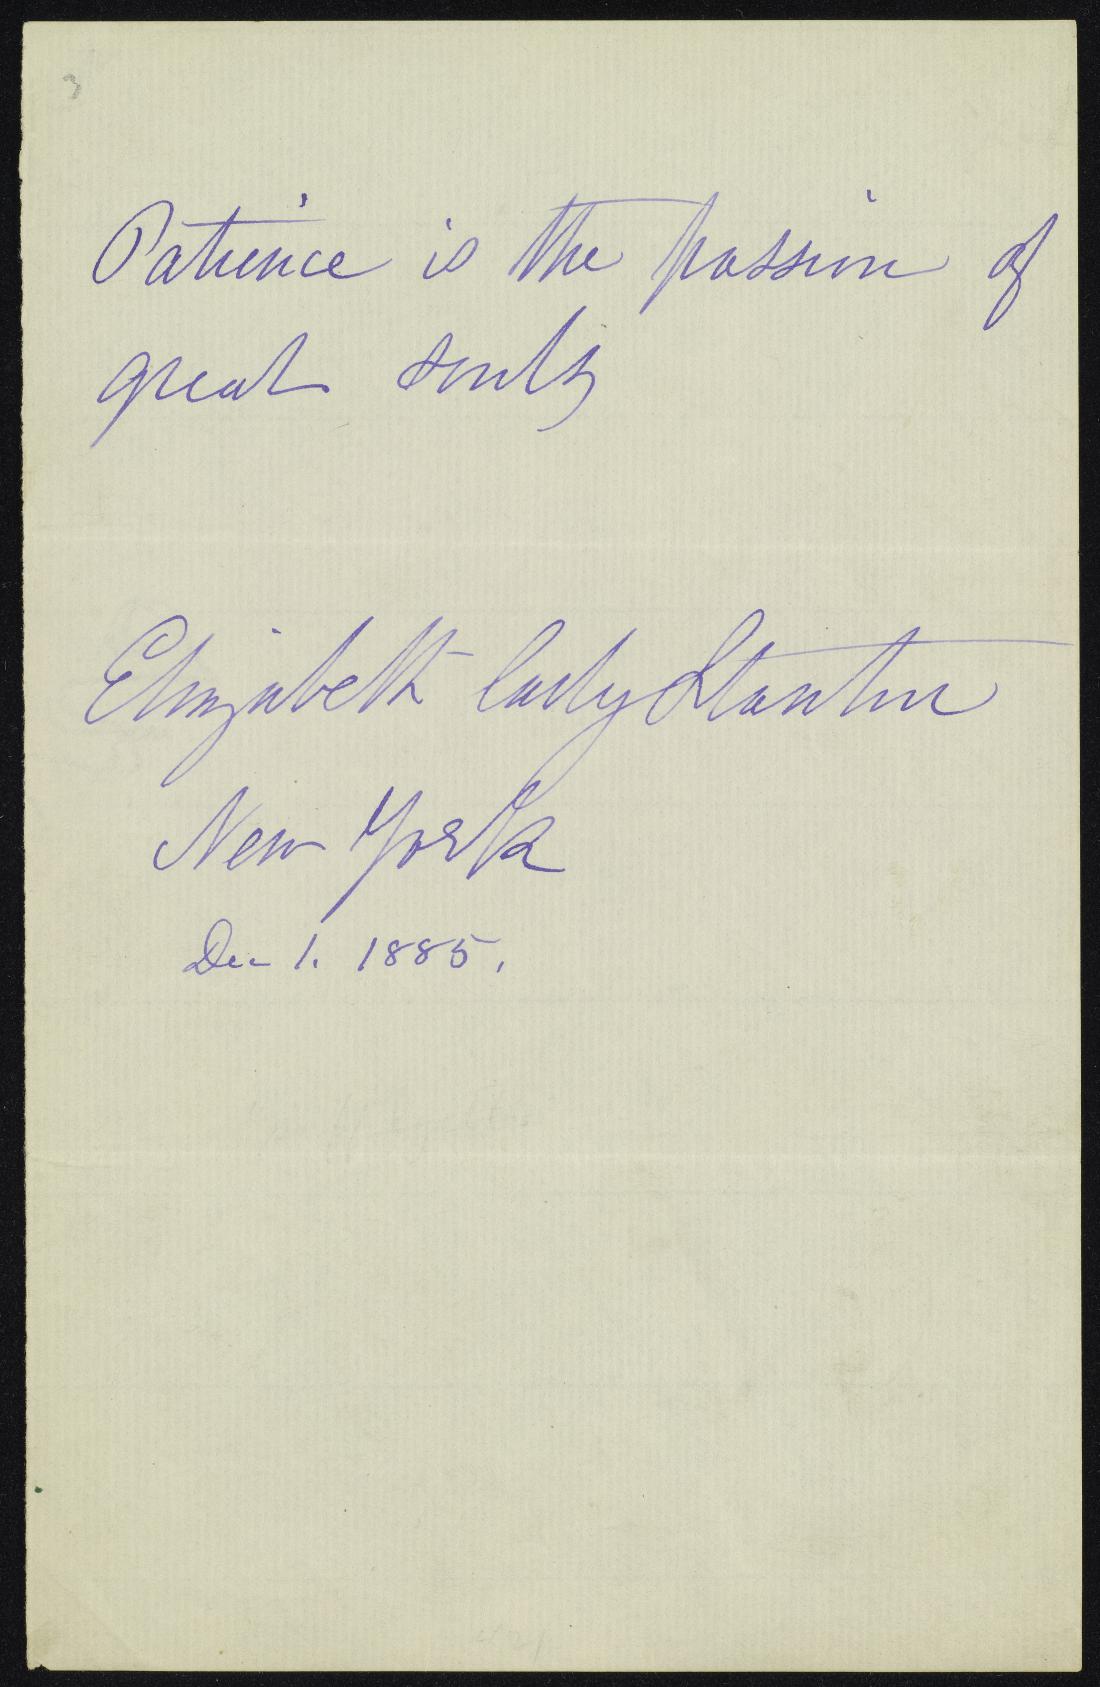 3
Patience is the passion of
great souls
Elizabeth Cady Stanton
New York
Dec 1. 1885.